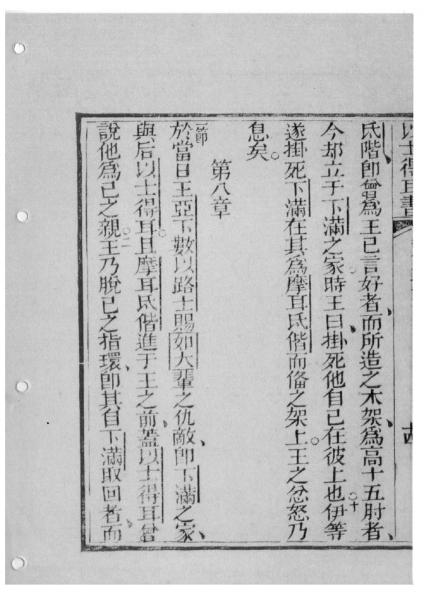 以士得耳書
氏階卽曾爲王已言好者、而所造之木架、爲高十五肘者、
今却立于下滿之家、時王曰、掛死他自己在彼上也。十伊等
遂掛死下滿在其爲摩耳氏偕而備之架上。王之忿怒乃
息矣。
第八章
一節於當日王亞下數以路士賜如大輩之仇敵卽下滿之家、
與后以士得耳。且摩耳氏偕進于王之前、蓋以士得耳曾
說他爲己之親。二王乃脫己之指環、卽其自下滿取回者、而